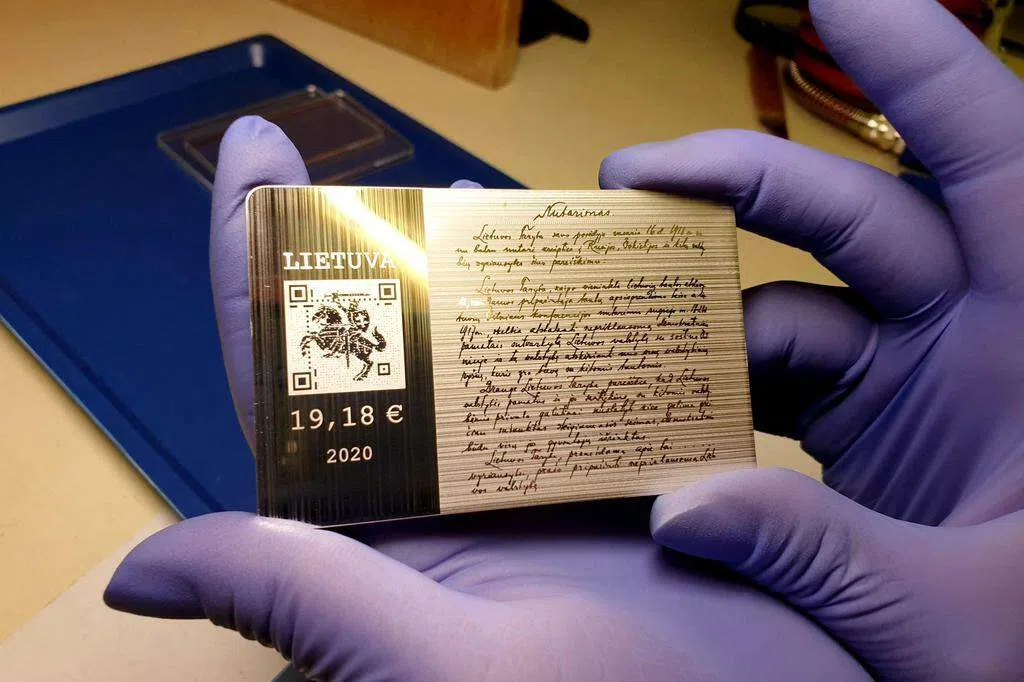 LIETUVA
19,18 €
2020
Nutarimas.
Lietuvos Taryba savo posėdyje vasario 16 d. 1918 m.
nu balsu nutarė kreiptis į Rusijos, Vokietijos ir kitų vals
bių vyriausybes šiuo pareiškimu:
Lietuvos Taryba, kaipo vienintelė lietuvių tautos
pripažintąja tautų apsisprendimo teise
Vilniaus konferencijos nutarimu rugsėjo
1917 m. skelbia atstatanti nepriklausomą, demokratiniais
pamatais sutvarkytą Lietuvos valstybę su sostine
niuje ir tą valstybę atskirianti nuo visų valstybinių
ryšių, kurie yra buvę su kitomis tautomis.
Drauge Lietuvos Taryba pareiškia, kad Lietuvos
valstybės pamatus ir jos santykius su kitomis vals
bėmis privalo galutinai nustatyti kiek galima grei
čiau sušauktas steigiamasis seimas, demokratiniu
būdu visų jos gyventojų išrinktas.
Lietuvos Taryba, pranešdama apie tai
vyriausybei, prašo pripažinti nepriklausomą Lietu
vos valstybę